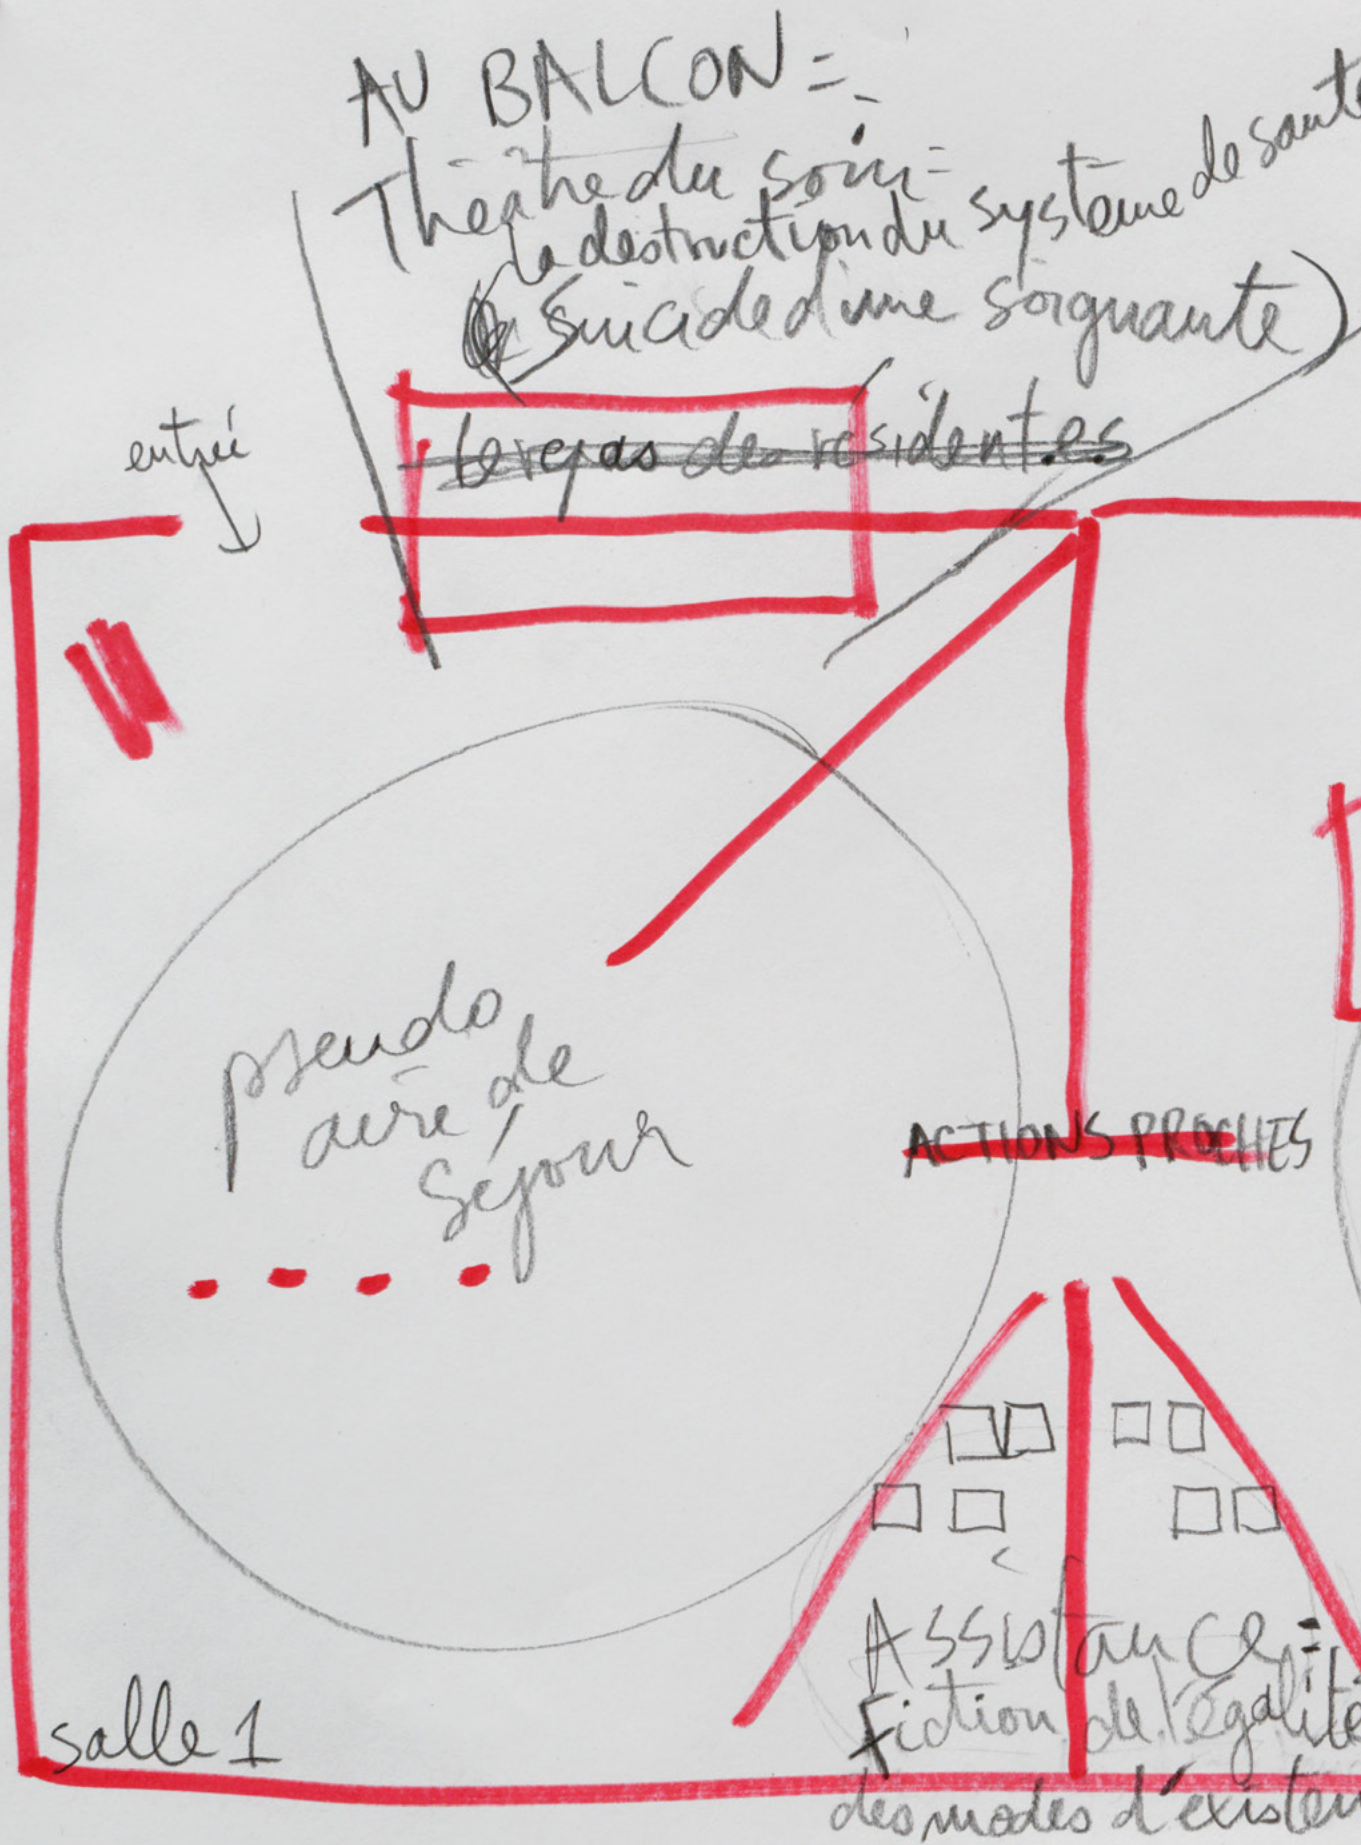 AU BALCON =
Théâtre du soin =
la destruction du système de santé
(suicide d'une soignante)
le repas des résident.es
entrée
pseudo
aire de
séjour
ACTIONS PROCHES
Assistance =
Fiction de l'égalité
des modes d'existen
salle 1